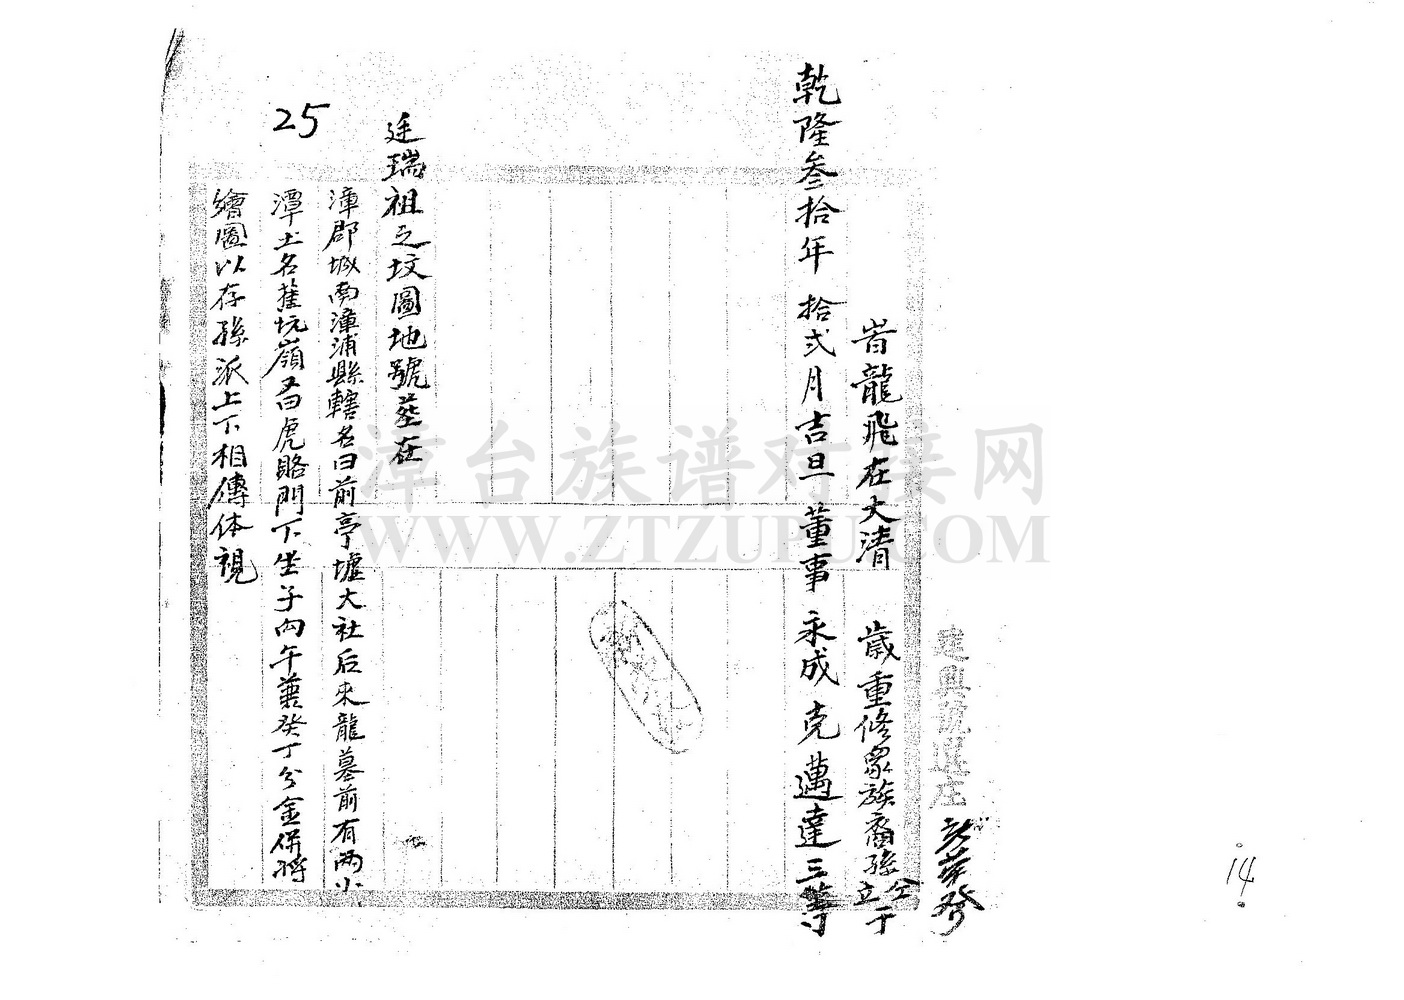 建興號選庄
岢龍飛在大清 歲重修衆族裔孫仝立于
乾隆叁拾年 拾弍月吉旦 董事 永成 克邁達三等
廷瑞祖之坟圖地號茔在
漳郡城南漳浦縣轄名曰前亭墟大社后來龍墓前有两小
潭土名蕉坑嶺又曰虎路門下坐子向午兼癸丁分金併將
繪圖以存孫派上下相傳体視
25
14
漳台族谱对接网
WWW.ZTZUPU.COM